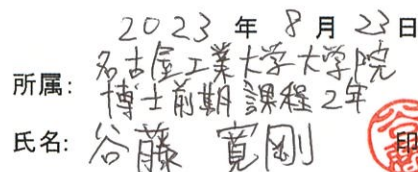 2023 年 8 月 23 日
名古屋工業大学大学院
所属: 博士前期課程2年
氏名: 谷藤 寛剛 印